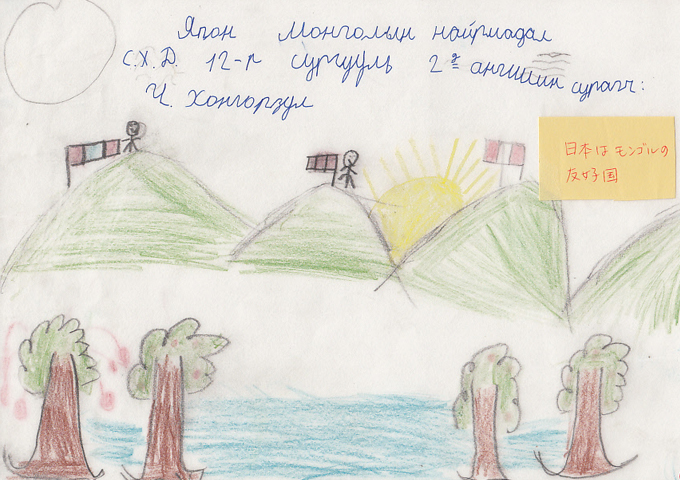 Япон Монголын найрмадал
С.Х.Д. 12-р сургууль 2д ангийин сурагч:
Ч. Хонгорзул
日本は モンゴルの
友好国